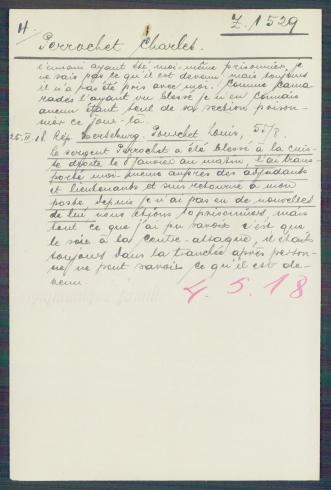 4/
Z. 1529
Perrochet Charles.
l'ennemi ayant été, moi-même prisonnier, je
ne sais pas ce qu'il est devenu, mais toujours
il n'a pas été pris avec moi. Comme cama
rades l'ayant vu blessé je n'en connais
aucun étant seul de sa section prison-
nier ce jour-là.
25.II.18 Rép. Merseburg. Pouchet Louis, 55/8.
le sergent Perrochet a été blessé à la cuis-
se droite le 8 janvier au matin, l'ai trans-
porté moi-même auprès des adjudants
et lieutenants et suis retourné à mon
poste. Depuis je n'ai pas eu de nouvelles
de lui nous étions 10 prisonniers, mais
tout ce que j'ai pu savoir c'est que
le soir à la contre-attaque, il était
toujours dans la tranchée après person-
ne ne peut savoir ce qu'il est de-
venu.
4.5.18